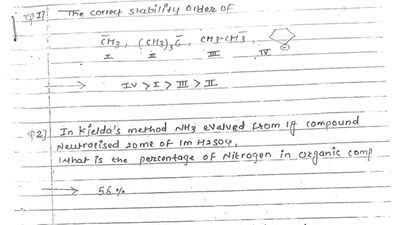 Q1] The correct stability order of
C̄H3, (CH3)3C̄, CH3-CH̄3,
I II III IV
→ IV > I > III > II
Q2] In Kjelda's method NH3 evalved from 1g compound
Neutralised 20ml of 1m H2SO4,
What is the percentage of Nitrogen in organic comp
→ 56%